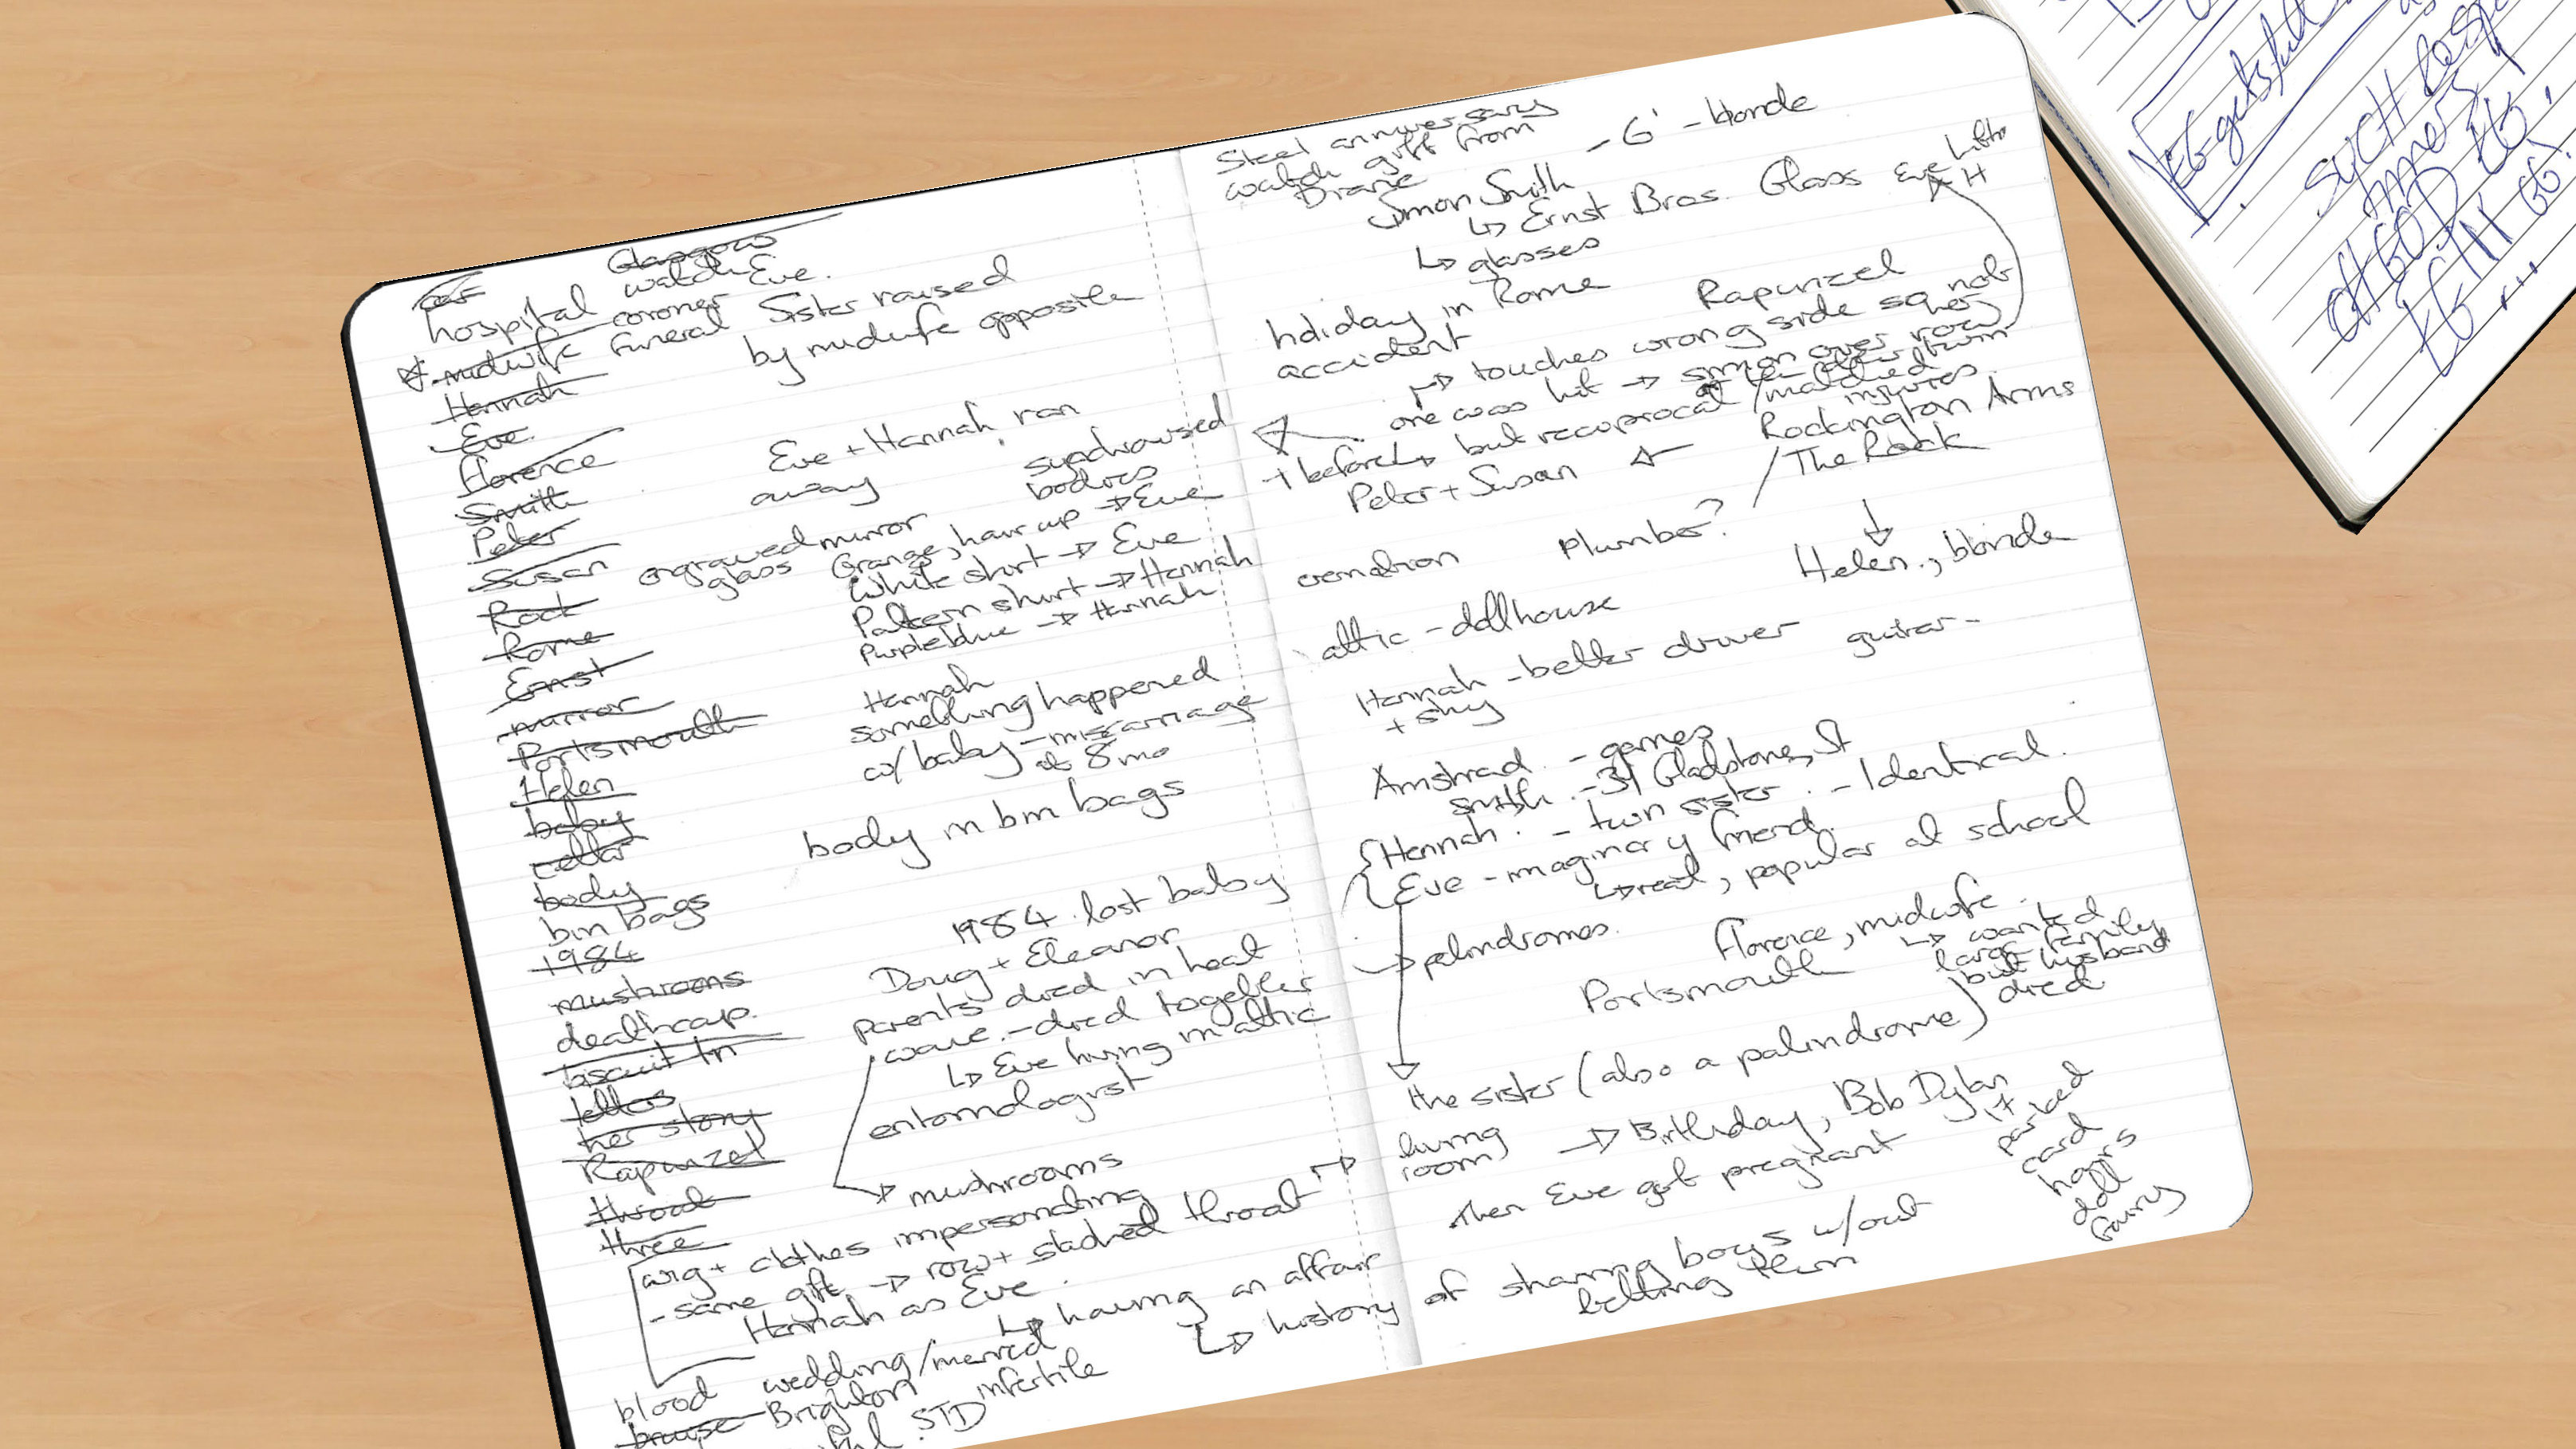 Glasgow
watch Eve.
hospital coroner
midwife funeral Sister raised
by midwife opposite
Hannah
Eve
Florence
Smith
Peter
Susan
Rock
Rome
Ernst
mirror
Portsmouth
Helen
baby
cellar
body
bin bags
1984
mushrooms
deathcap.
biscuit tin
letters
her story
Rapunzel
throat
three
Eve + Hannah ran
away
bodies
engraved mirror
glass
Orange, hair up → Eve
White shirt → Eve
Pattern shirt → Hannah
Purple blue → Hannah
Hannah
something happened
w/ baby - miscarriage
at 8 mo
body in bin bags
1984 lost baby
Doug + Eleanor
parents died in heat
wave. - died together
↳ Eve living in attic
entomologist
→ mushrooms
wig + clothes impersonating
- same gift → row + slashed throat →
Hannah as Eve.
↳ having an affair
↳ history of sharing boys w/out
telling them
wedding/married
blood
bruise Brighton
STD infertile
Steel anniversary
watch gift from
Diane
Simon Smith - 6' - blonde
↳ Ernst Bros. Glass
↳ glasses
Eve
H
holiday in Rome
accident
Rapunzel
→ touches wrong side
one was hit → Simon over row
+ before ↳ but reciprocal / matched
injuries.
Peter + Susan ←
Rockington Arms
/ The Rock
plumber?
Helen., blonde
attic - dollhouse
Hannah - better driver guitar -
+ shy
Amstrad. - games
Smith. - 34 Gladstone, St
Hannah. - twin sister. - Identical.
Eve - imaginary friend.
↳ real, popular at school
→ palindromes.
Florence, midwife.
↳ wanted
large family
but husband
died
Portsmouth
the sister (also a palindrome)
living
room
→ Birthday, Bob Dylan
17
then Eve got pregnant
card
hairs
doll
fairy